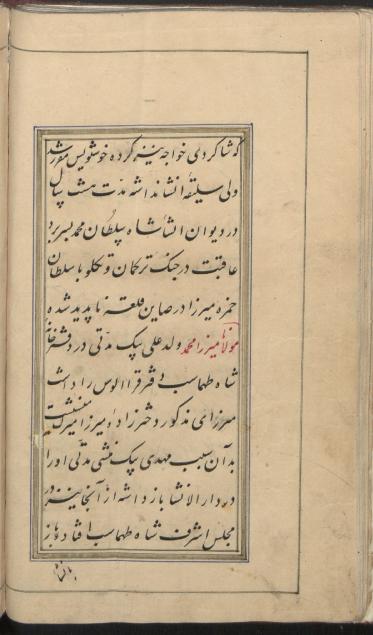 که شاگردی خواجه نیز کرده خوشنویس مقرر شد
ولی سلیقهٔ انشا نداشته مدت هشت سال
در دیوان انشا شاه سلطان محمد بسر برد
عاقبت در جنگ ترکمان و تکلو با سلطان
حمزه میرزا در صاین قلعه ناپدید شده
مولانا میرزا محمد ولد علی بیک مدتی در دفترخانهٔ
شاه طهماسب دفتر قرا الوس را داشت
میرزای مذکور دخترزادهٔ میرزا
بدان سبب مهدی بیک منشی مدتی او را
در دارالانشا باز داشته از آنجا نیز در
مجلس اشرف شاه طهماسب افتاده باز